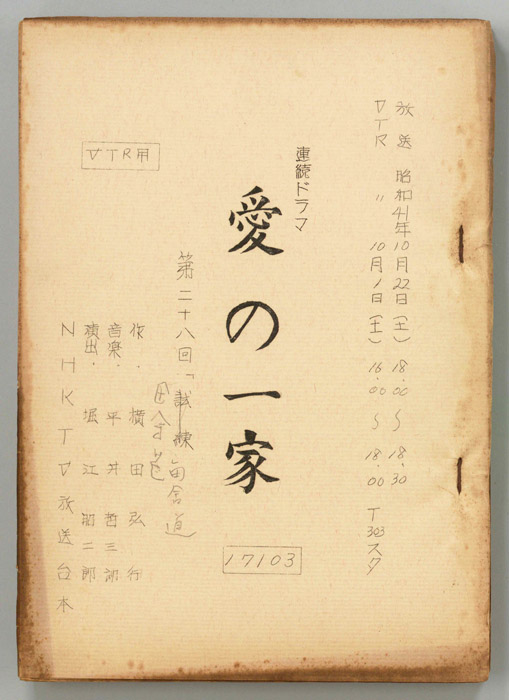 放送 昭和41年10月22日(土) 18.00〜18.30
VTR 〃 10月1日(土) 16.00〜18.00 T303スタ
連続ドラマ
愛の一家
17103
第二十八回「試練 田舎道
田舎道
VTR用
作・横田弘行
音楽・平井哲三郎
演出・堀江昭二郎
NHKTV放送台本